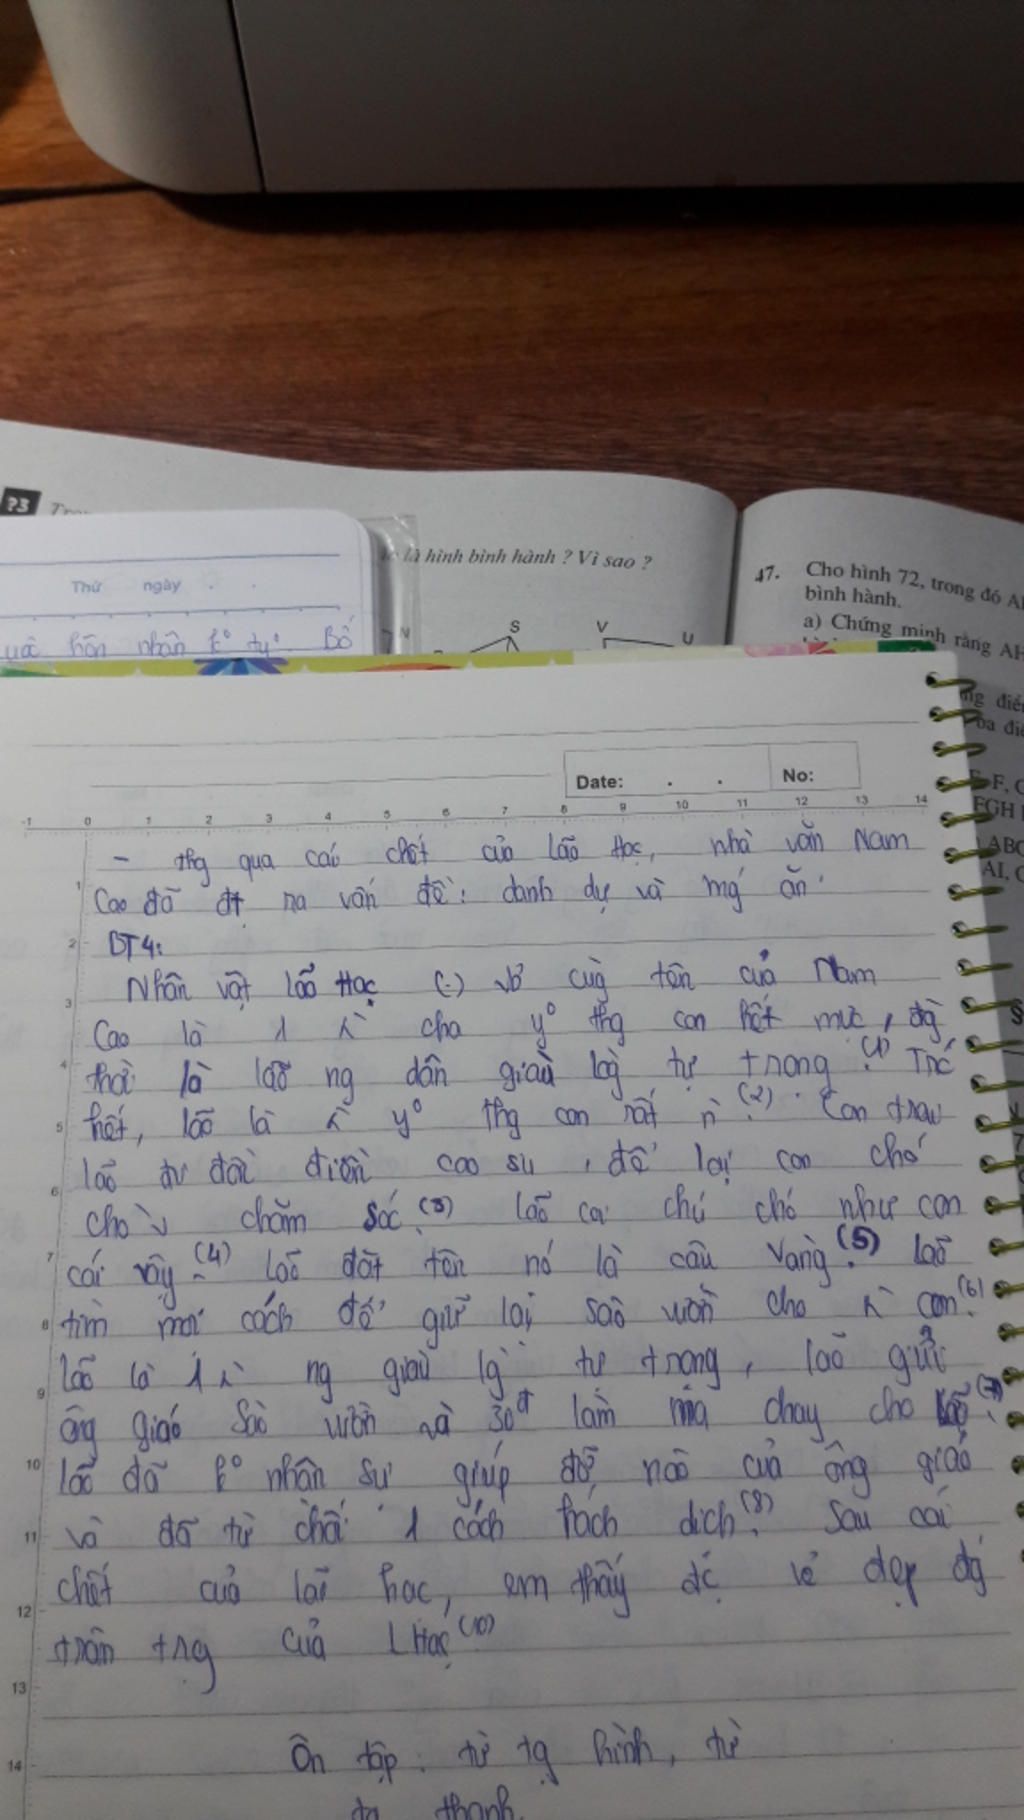 ?3
là hình bình hành ? Vì sao ?
47. Cho hình 72, trong đó
bình hành.
a) Chứng minh rằng AH
Thứ ngày
hôn nhân ko tự. Bố
N
S
V
U
Date: . . No:
-1 0 1 2 3 4 5 6 7 8 9 10 11 12 13 14
- thg qua cái chết của Lão Hạc, nhà văn Nam
Cao đã đặt ra vấn đề: danh dự và mg ăn
BT4:
Nhân vật lão Hạc (-) vb cùg tên của Nam
Cao là 1 cha yº thg con hết mực, đg
thời là lão ng dân giàu lg tự trọng (1) Trc
hết, lão là yº thg con rất (2). Con trai
lão đi đồn điền cao su, để lại con chó
cho chăm sóc (3) lão coi chú chó như con
cái vậy (4) Lão đặt tên nó là cậu Vàng. (5) Lão
tìm mọi cách để giữ lại vườn cho con (6)
Lão là 1 ng giàu lg tự trọng, lão gửi
ông giáo vườn và 30đ làm ma chay cho lão (7)
lão đã ko nhận sự giúp đỡ nào của ông giáo
và đã từ chối 1 cách hách dịch (8) Sau cái
chết của lão hạc, em thấy đc vẻ đẹp đg
trân trg của L Hạc (10)
Ôn tập: từ tg hình, từ
tg thanh.